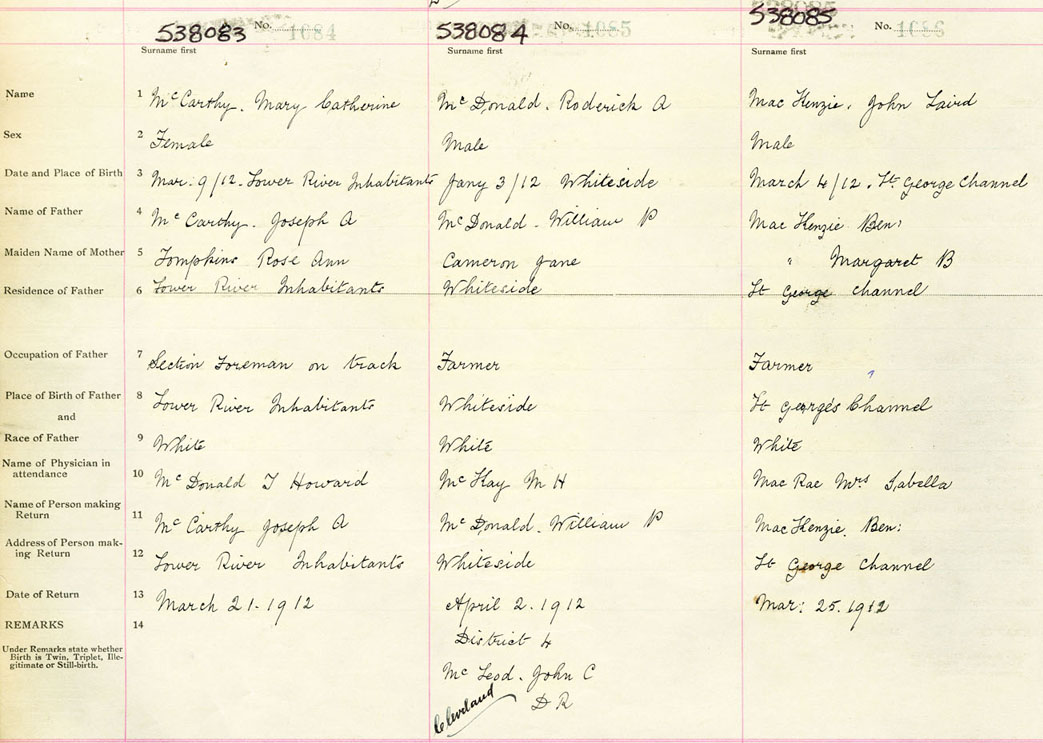 538083 No. 1084 538084 No. 1085 538085 No. 1086
Surname first Surname first Surname first
Name 1 McCarthy. Mary Catherine McDonald. Roderick A MacKenzie. John Laird
Sex 2 Female Male Male
Date and Place of Birth 3 Mar. 9/12. Lower River Inhabitants Jany 3/12 Whiteside March 4/12. St George Channel
Name of Father 4 McCarthy. Joseph A McDonald. William P MacKenzie Ben:
Maiden Name of Mother 5 Tompkins Rose Ann Cameron Jane " Margaret B
Residence of Father 6 Lower River Inhabitants Whiteside St George Channel
Occupation of Father 7 Section Foreman on track Farmer Farmer
Place of Birth of Father 8 Lower River Inhabitants Whiteside St George's Channel
and
Race of Father 9 White White White
Name of Physician in
attendance 10 McDonald T Howard McKay M H MacRae Mrs Isabella
Name of Person making
Return 11 McCarthy Joseph A McDonald. William P MacKenzie. Ben:
Address of Person mak-
ing Return 12 Lower River Inhabitants Whiteside St George Channel
Date of Return 13 March 21-1912 April 2. 1912 Mar: 25. 1912
REMARKS 14 District 4
Under Remarks state whether
Birth is Twin, Triplet, Ille-
gitimate or Still-birth.
McLeod. John C
D R
Cleveland